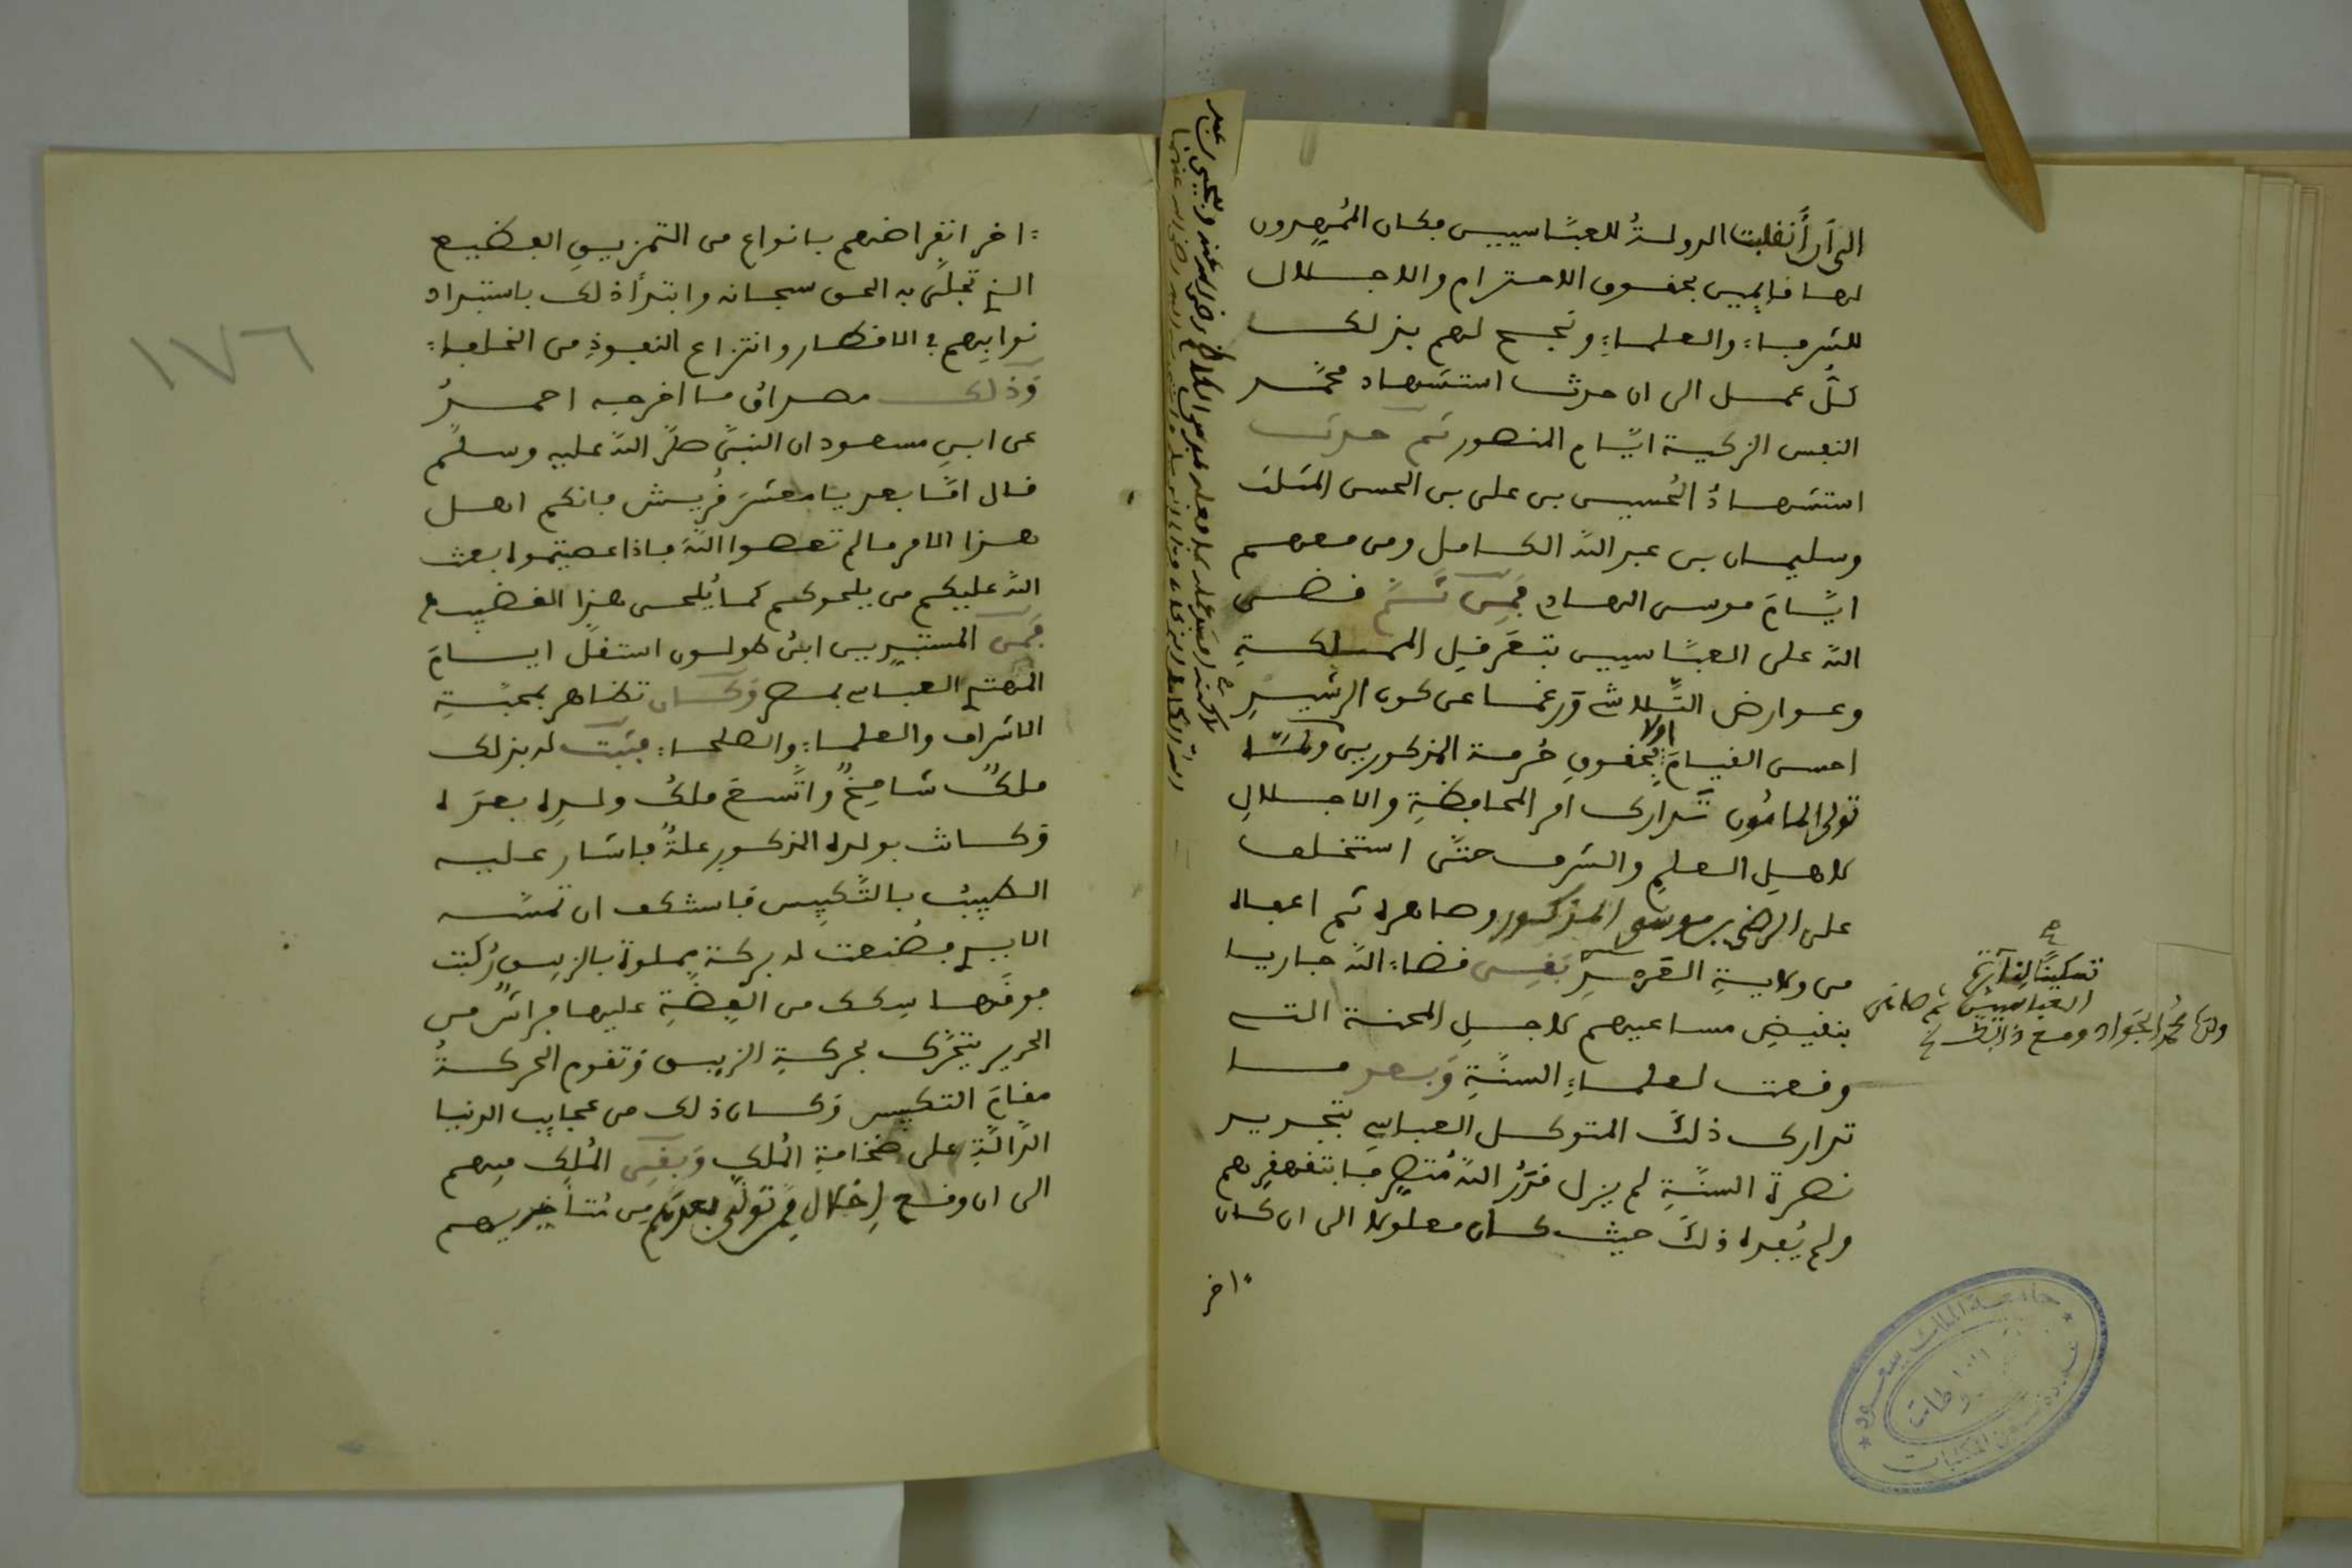 الى أن أنقلبت الدولةُ للعبَّاسيين فكان المُمهدون
لها قايمين بحقوق الاحترام والاجلال
للشرفاء والعلماء ونجح لهم بذلك
كلُّ عمل الى ان حدث استشهاد محمَّد
النفس الزكية ايَّام المنصور ثم حدث
استشهادُ الحُسين بن على بن الحسن المثلث
وسليمان بن عبد اللّه الكامل ومن معهم
ايَّامَ موسى الهادي فمِن ثَمَّ قضى
اللّه على العبَّاسيين بتعرقل المملكةِ
وعوارض التَّلاشي ورغما عن كون الرشيدِ
احسن القيامَ اولا بحقوقِ حُرمة المذكورين ولمَّا
تولى المامُون تدارك امر المحافظةِ والاجلالِ
لاهلِ العلمِ والشرف حتَّى استخلف
على الرضى بن موسى المذكور وصاهره ثم اعفاه
من ولايةِ العَهدِ بَقِى قضاء اللّه جاريا
بنقيضِ مساعيهم لاجلِ المحنة التي
وقعت لعلماءِ السنَّةِ وبعد ما
تدارك ذلك المتوكل العباسي بتجريد
نصرة السنَّةِ لم يزل قدَرُ اللّه مُتصرفا بتقهقرهم
ولم يُفده ذلك حيث كان معلولا الى ان كان
اخر
تسكيناً لثآرة
العباسيين ثم صاهر
ولدَه محمَّد الجَوَاد ومع ذالك
اخر انقراضهم بانواع من التمزيقِ الفظيع
الذي تجلَّى به الحق سبحانه وابتدأ ذلك باستبداد
نوابِهم في الاقطار وانتزاع النفوذِ من الخلفاء
وَذلك مصداقُ ما اخرجه احمدُ
عن ابي مسعود ان النبيَّ صلَّى اللّه عليه وسلَّم
قال امَّا بعد يا معشرَ قُريش فانكم اهل
هذا الامر ما لم تعصوا اللّهَ فاذا عصيتموه بعث
اللّه عليكم من يلحوكم كما يُلحى هذا القضيب
فمِن المستبدين ابنُ طولون استقلَّ ايامَ
المهتدي العباسي بمصر وَكان تظاهر بمحبَّةِ
الاشراف والعلماء والصلحاء فثبت له بذلك
ملكٌ شامخٌ واتَّسعَ ملكُ ولدِه بعدَه
وَكانت بولده المذكور علةٌ فاشار عليه
الطبيبُ بالتَّكبيس فاستنكف ان تمسَّه
الايدي فصُنعت له بركة مملوة بالزيبق رُكبت
فوقَها سِككٌ من الفِضَّةِ عليها فراشٌ من
الحرير يتحرَّك بحركةِ الزيبق وَتقوم الحركةُ
مقامَ التكبيس وَكان ذلك من عجايب الدنيا
الدَّالَّةِ على ضخامةِ المُلكِ وَبقِى المُلك فيهم
الى ان وقع إخلال فمن تولَّى بعدهم من مُتأخريهم
١٧٦
جامعة الملك سعود
عمادة شؤون المكتبات
مخطوطات